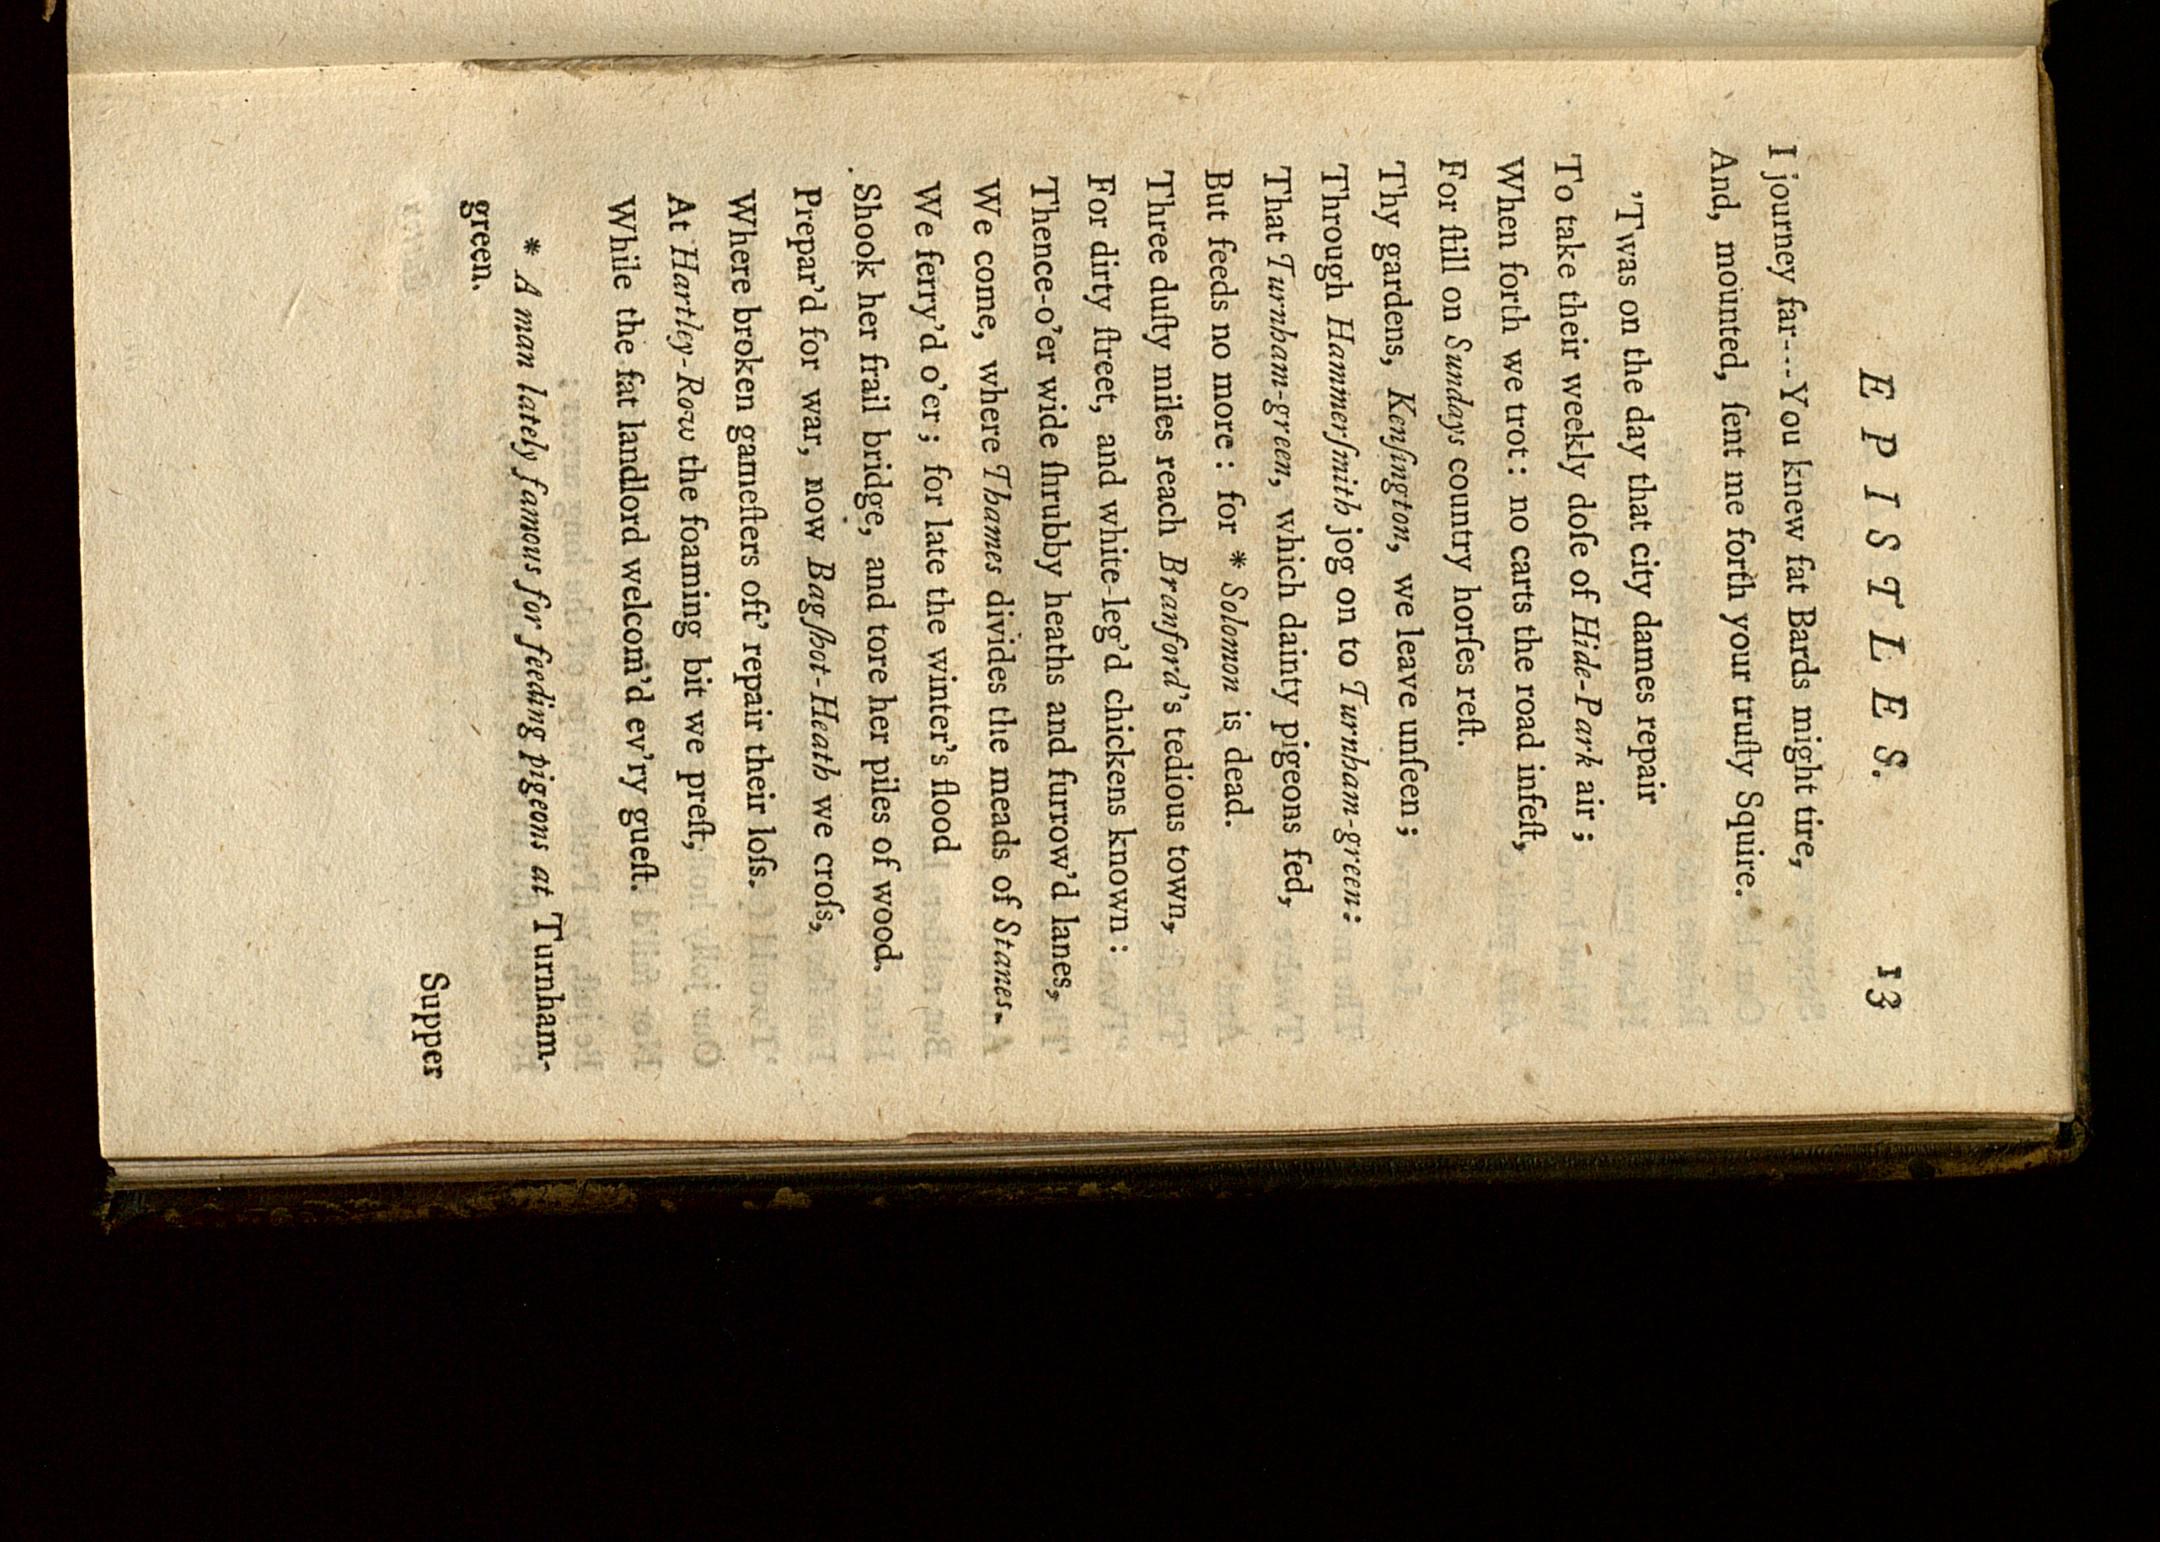 EPISTLES. 13
I journey far---You knew fat Bards might tire,
And, mounted, ſent me forth your truſty Squire.
'Twas on the day that city dames repair
To take their weekly doſe of Hide-Park air;
When forth we trot: no carts the road infeſt,
For ſtill on Sundays country horſes reſt.
Thy gardens, Kenſington, we leave unſeen;
Through Hammerſmith jog on to Turnham-green:
That Turnham-green, which dainty pigeons fed,
But feeds no more: for * Solomon is dead.
Three duſty miles reach Branford's tedious town,
For dirty ſtreet, and white-leg'd chickens known:
Thence-o'er wide ſhrubby heaths and furrow'd lanes,
We come, where Thames divides the meads of Stanes.
We ferry'd o'er; for late the winter's flood
Shook her frail bridge, and tore her piles of wood.
Prepar'd for war, now Bagſhot-Heath we croſs,
Where broken gameſters oft' repair their loſs.
At Hartley-Row the foaming bit we preſt,
While the fat landlord welcom'd ev'ry gueſt.
* A man lately famous for feeding pigeons at Turnham-
green.
Supper